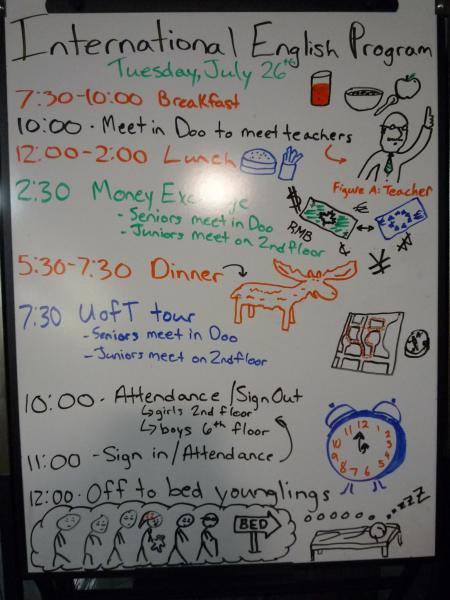 International English Program
Tuesday, July 26th
7:30-10:00 Breakfast
10:00 - Meet in Doo to meet teachers
12:00-2:00 Lunch
Figure A: Teacher
2:30 Money Exchange
- Seniors meet in Doo
- Juniors meet on 2nd floor
$ RMB € ¥
5:30-7:30 Dinner
7:30 UofT tour
- Seniors meet in Doo
- Juniors meet on 2nd floor
10:00 - Attendance/Sign Out
↳ girls 2nd floor
↳ boys 6th floor
11:00 - Sign in/Attendance
12 1 2 3 4 5 6 7 8 9 10 11
12:00 - Off to bed younglings
BED
zzZ